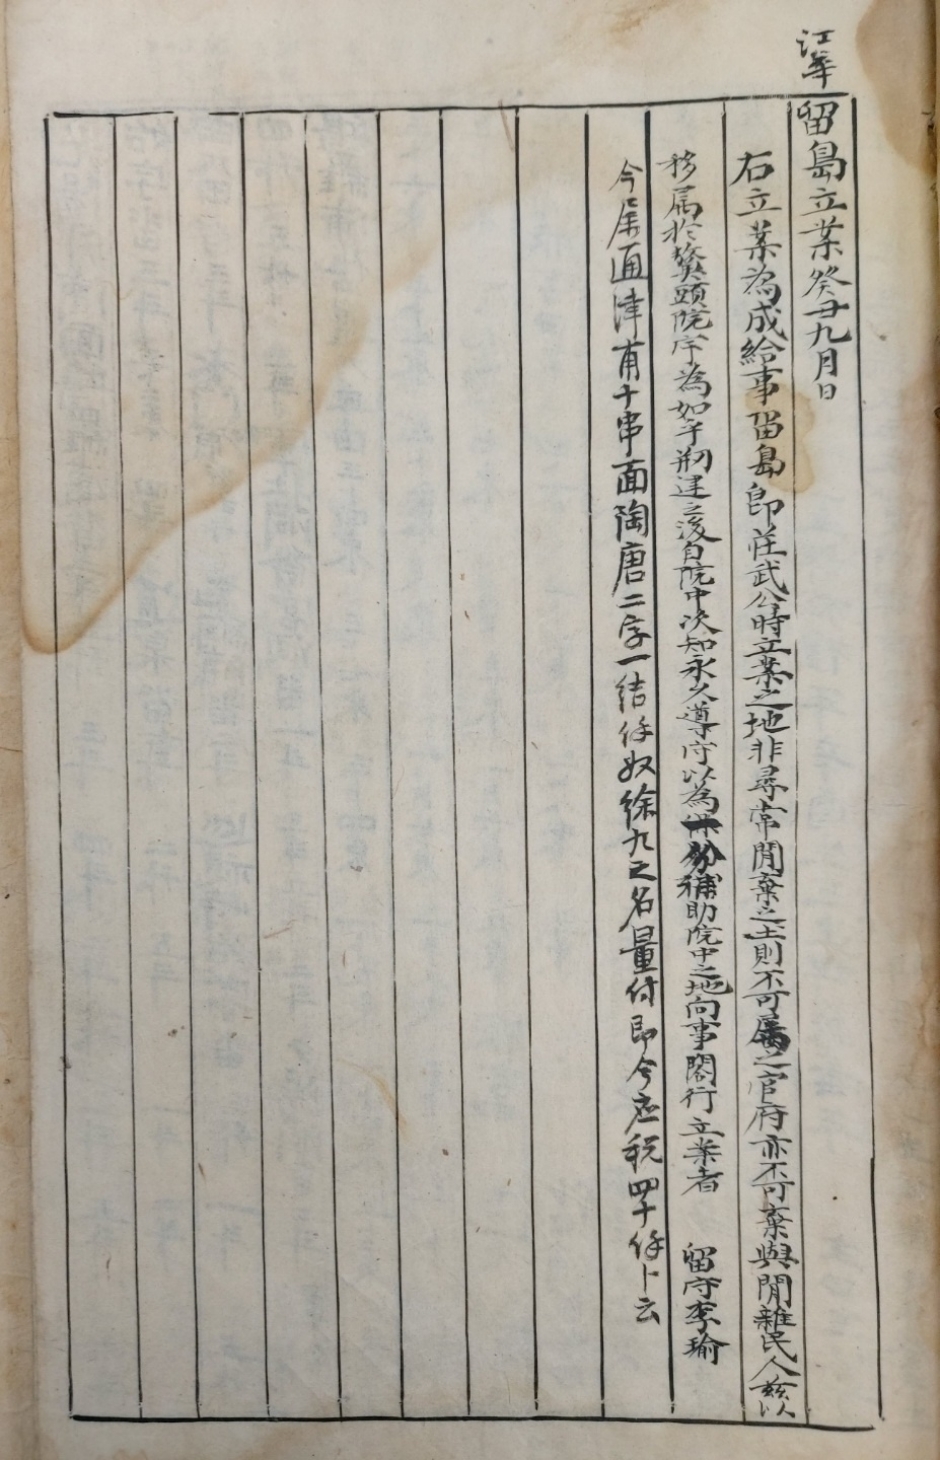 江華
留島立案癸丑九月日
右立案為成給事留島即莊武公時立案之地非尋常閒棄之土則不可屬之官府亦不可棄與閒雜民人玆以
移属於鷺頭院宇為如乎刱建之後自院中決知永久遵守以為補助院中之地向事閤行立案者 留守李瑜
今屬通津甫十串面陶唐二字一結仔奴徐九之名量付即今应稅四十仔卜云